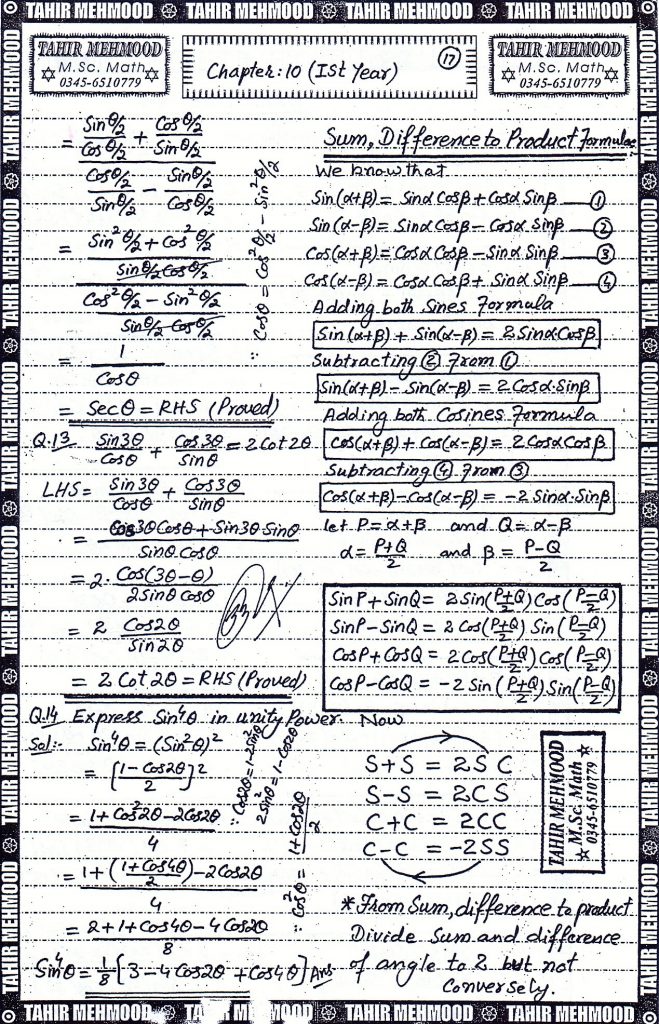 TAHIR MEHMOOD TAHIR MEHMOOD TAHIR MEHMOOD TAHIR MEHMOOD
TAHIR MEHMOOD
M.Sc. Math
0345-6510779
Chapter: 10 (Ist Year)
17
TAHIR MEHMOOD
M.Sc. Math
0345-6510779
= (Sinθ/2 / Cosθ/2 + Cosθ/2 / Sinθ/2) / (Cosθ/2 / Sinθ/2 − Sinθ/2 / Cosθ/2)
= ((Sin²θ/2 + Cos²θ/2) / (Sinθ/2 Cosθ/2)) / ((Cos²θ/2 − Sin²θ/2) / (Sinθ/2 Cosθ/2))
∵ Cosθ = Cos²θ/2 − Sin²θ/2
= 1 / Cosθ
= Secθ = RHS (Proved)
Q.13 Sin3θ/Cosθ + Cos3θ/Sinθ = 2Cot2θ
LHS = Sin3θ/Cosθ + Cos3θ/Sinθ
= (Cos3θ Cosθ + Sin3θ Sinθ) / (Sinθ Cosθ)
= 2. Cos(3θ−θ) / (2Sinθ Cosθ)
= 2 Cos2θ / Sin2θ
= 2 Cot2θ = RHS (Proved)
Q.14 Express Sin⁴θ in unity Power.
Sol:- Sin⁴θ = (Sin²θ)²
= [(1−Cos2θ)/2]²
∵ Cos2θ = 1−2Sin²θ
2Sin²θ = 1−Cos2θ
= (1+Cos²2θ−2Cos2θ) / 4
= (1+((1+Cos4θ)/2)−2Cos2θ) / 4
∵ Cos²θ = (1+Cos2θ)/2
= (2+1+Cos4θ−4Cos2θ) / 8
Sin⁴θ = 1/8 [3−4Cos2θ+Cos4θ] Ans
Sum, Difference to Product Formulae:
We know that
Sin(α+β) = Sinα Cosβ + Cosα Sinβ — ①
Sin(α−β) = Sinα Cosβ − Cosα Sinβ — ②
Cos(α+β) = Cosα Cosβ − Sinα Sinβ — ③
Cos(α−β) = Cosα Cosβ + Sinα Sinβ — ④
Adding both Sines Formula
Sin(α+β) + Sin(α−β) = 2Sinα.Cosβ
Subtracting ② From ①
Sin(α+β) − Sin(α−β) = 2Cosα.Sinβ
Adding both Cosines Formula
Cos(α+β) + Cos(α−β) = 2CosαCosβ
Subtracting ④ From ③
Cos(α+β)−Cos(α−β) = −2Sinα.Sinβ
let P = α+β and Q = α−β
α = (P+Q)/2 and β = (P−Q)/2
SinP + SinQ = 2Sin((P+Q)/2) Cos((P−Q)/2)
SinP − SinQ = 2Cos((P+Q)/2) Sin((P−Q)/2)
CosP + CosQ = 2Cos((P+Q)/2) Cos((P−Q)/2)
CosP − CosQ = −2Sin((P+Q)/2) Sin((P−Q)/2)
Now
S+S = 2SC
S−S = 2CS
C+C = 2CC
C−C = −2SS
TAHIR MEHMOOD
M.Sc. Math
0345-6510779
*From Sum, difference to product
Divide Sum and difference
of angle to 2 but not
Conversely.
TAHIR MEHMOOD TAHIR MEHMOOD TAHIR MEHMOOD TAHIR MEHMOOD